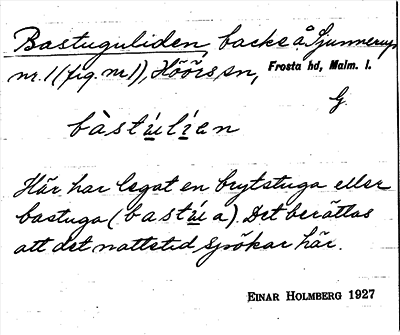 Bastuguliden, backe å Sjunnerup
nr. 1 (fig. nr 1), Höörs sn, Frosta hd, Malm. l.
G
bàstúlíen
Här har legat en brytstuga eller
bastuga (bastúa). Det berättas
att det nattetid spökar här.
EINAR HOLMBERG 1927